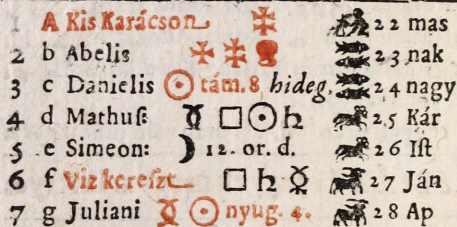 1 A Kis Karácson 22 mas
2 b Abelis 23 nak
3 c Danielis ☉ tám. 8 hideg. 24 nagy
4 d Mathuſ: ☿ □ ☉ ♄ 25 Kár
5 e Simeon: ☽ 12. or. d. 26 Iſt
6 f Viz kereſzt □ ♄ ☿ 27 Ján
7 g Juliani ☿ ☉ nyug. 4. 28 Ap